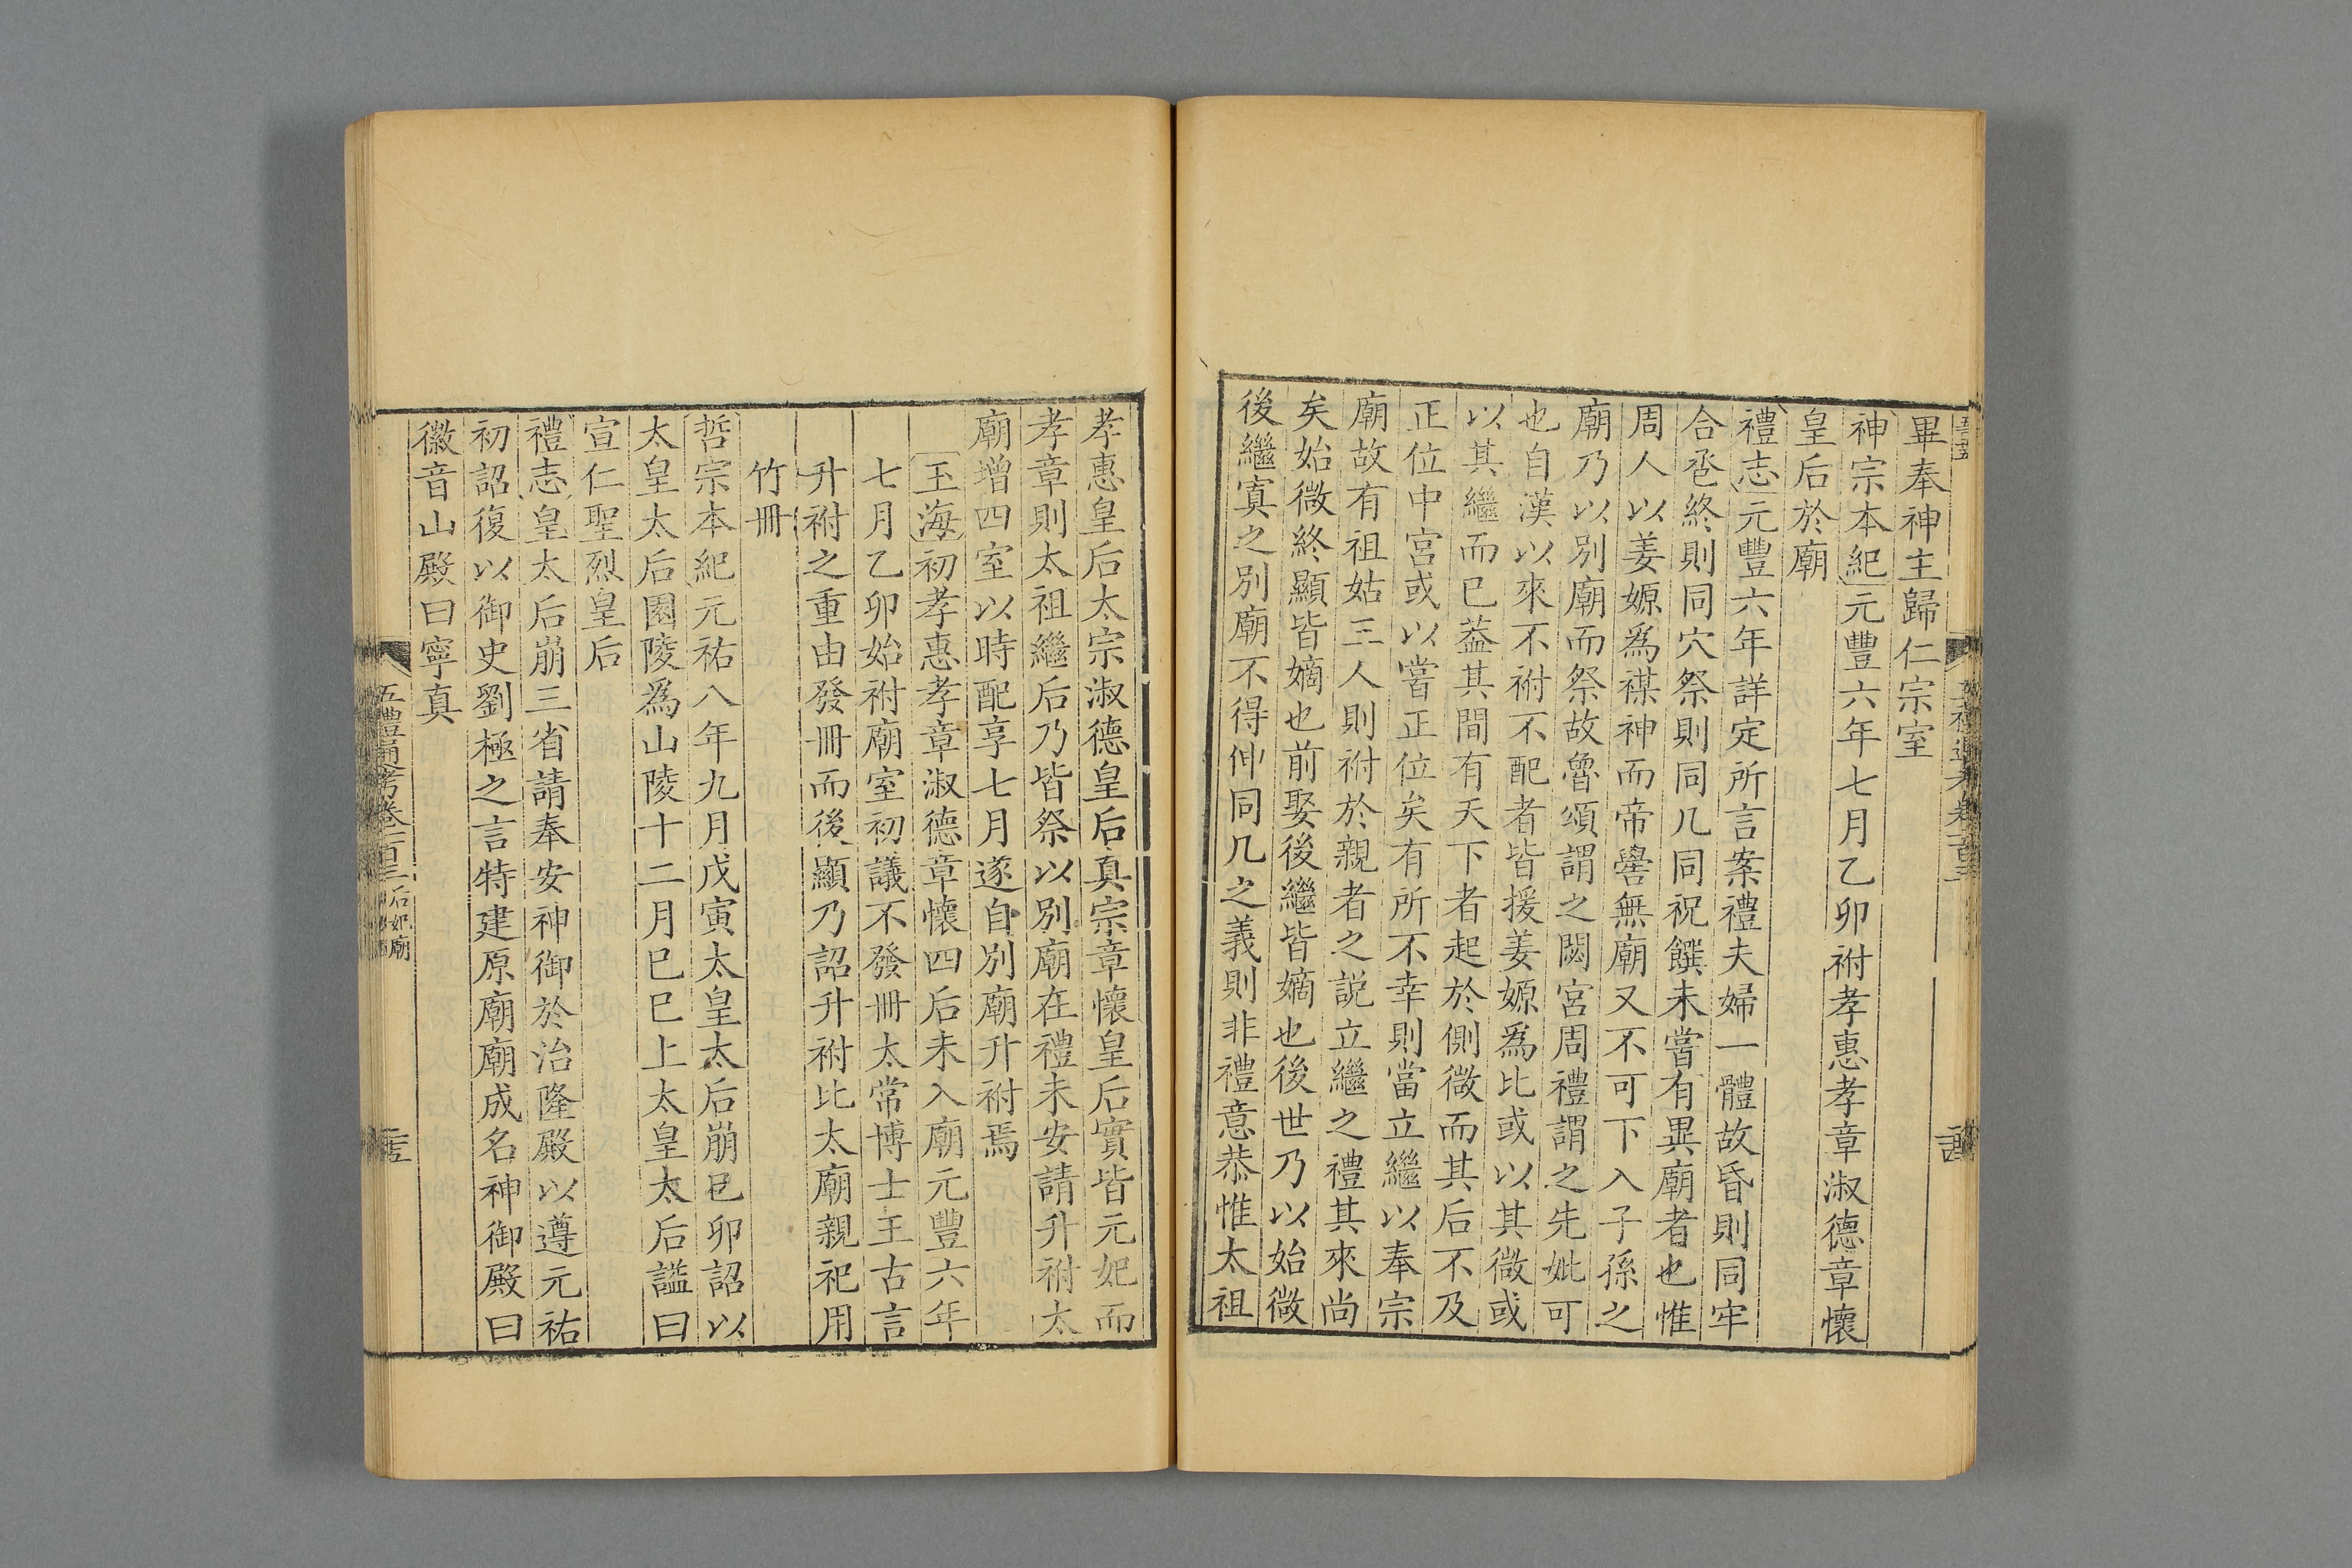 畢奉神主歸仁宗室
神宗本紀元豐六年七月乙卯祔孝惠孝章淑德章懷
皇后於廟
禮志元豐六年詳定所言案禮夫婦一體故昏則同牢
合卺終則同穴祭則同几同祝饌未嘗有異廟者也惟
周人以姜嫄爲禖神而帝嚳無廟又不可下入子孫之
廟乃以別廟而祭故魯頌謂之閟宮周禮謂之先妣可
也自漢以來不祔不配者皆援姜嫄爲比或以其微或
以其繼而已葢其間有天下者起於側微而其后不及
正位中宮或以嘗正位矣有所不幸則當立繼以奉宗
廟故有祖姑三人則祔於親者之説立繼之禮其來尚
矣始微終顯皆嫡也前娶後繼皆嫡也後世乃以始微
後繼寘之別廟不得伸同几之義則非禮意恭惟太祖
孝惠皇后太宗淑德皇后真宗章懷皇后實皆元妃而
孝章則太祖繼后乃皆祭以別廟在禮未安請升祔太
廟增四室以時配享七月遂自別廟升祔焉
玉海初孝惠孝章淑德章懷四后未入廟元豐六年
七月乙卯始祔廟室初議不發冊太常博士王古言
升祔之重由發冊而後顯乃詔升祔比太廟親祀用
竹冊
哲宗本紀元祐八年九月戊寅太皇太后崩己卯詔以
太皇太后園陵爲山陵十二月己巳上太皇太后諡曰
宣仁聖烈皇后
禮志皇太后崩三省請奉安神御於治隆殿以遵元祐
初詔復以御史劉極之言特建原廟廟成名神御殿曰
徽音山殿曰寧真
五禮通考卷一百三 后妃廟